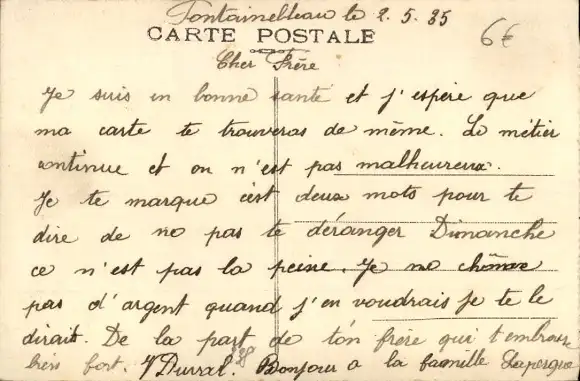 Fontainebleau le 2.5.35
CARTE POSTALE
6€
Cher Frère
Je suis en bonne santé et j'espère que
ma carte te trouveras de même. Le métier
continue et on n'est pas malheureux.
Je te marque cést deux mots pour te
dire de no pas te déranger Dimanche
ce n'est pas la peine. Je no chôme
pas d'argent quand j'en voudrais je te le
dirait. De la part de ton frère qui t'embrasse
très fort. Bonjour a la famille